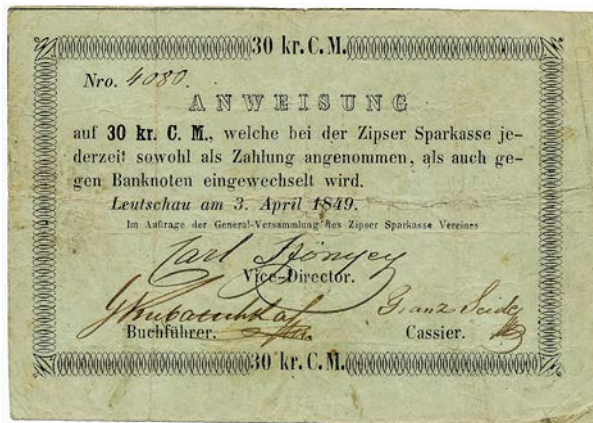 30 kr. C. M.
Nro. 4080.
ANWEISUNG
auf 30 kr. C. M., welche bei der Zipser Sparkasse je-
derzeit sowohl als Zahlung angenommen, als auch ge-
gen Banknoten eingewechselt wird.
Leutschau am 3. April 1849.
Im Auftrage der General-Versammlung des Zipser Sparkasse Vereines
Carl
Vice-Director.
Buchführer. Cassier.
30 kr. C. M.